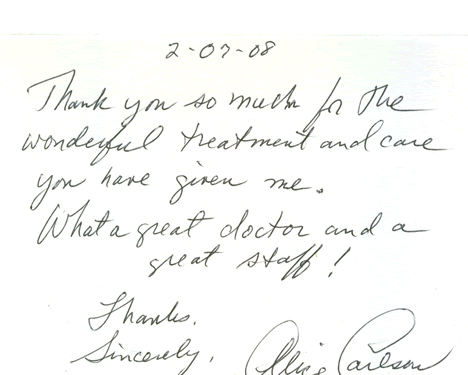 2-07-08
Thank you so much for the
wonderful treatment and care
you have given me.
What a great doctor and a
great staff!
Thanks.
Sincerely,
Alice Carlson